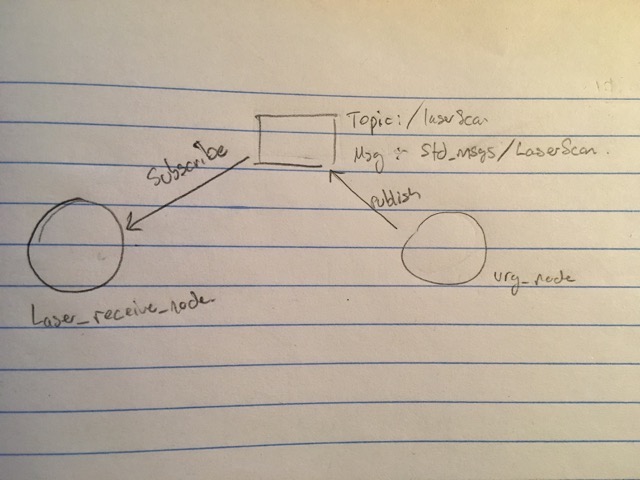 Topic: /laserScan
Msg :- Std_msgs/LaserScan.
Subscribe
publish
urg_node
Laser_receive_node